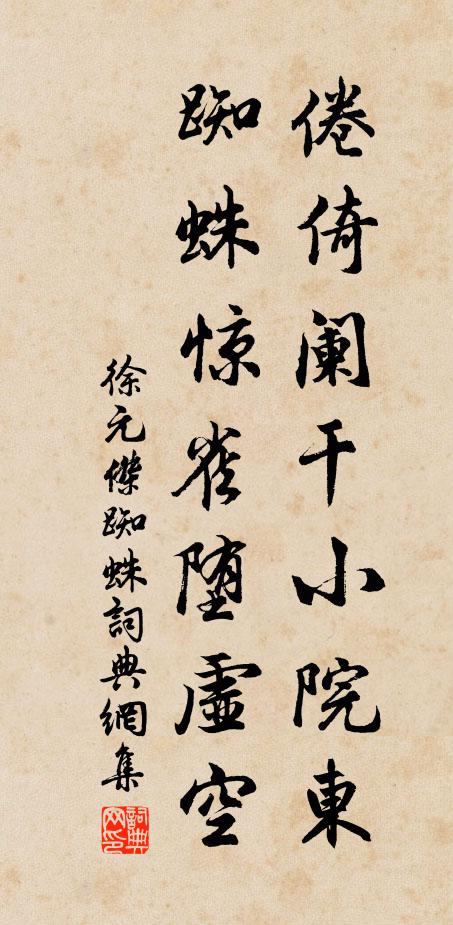 倦倚阑干小院東
踟蛛惊雀堕虛空
徐元傑踟蛛詞典網集
詞典网印